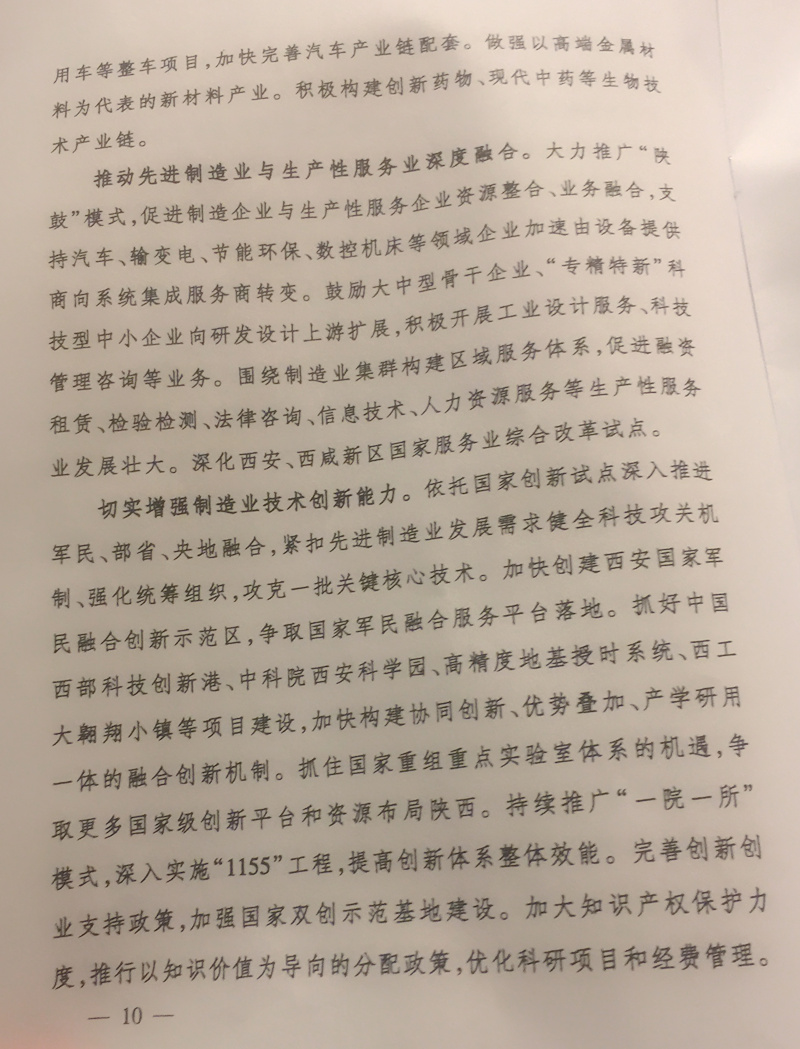 用车等整车项目,加快完善汽车产业链配套。做强以高端金属材
料为代表的新材料产业。积极构建创新药物、现代中药等生物技
术产业链。
推动先进制造业与生产性服务业深度融合。大力推广“陕
鼓”模式,促进制造企业与生产性服务企业资源整合、业务融合,支
持汽车、输变电、节能环保、数控机床等领域企业加速由设备提供
商向系统集成服务商转变。鼓励大中型骨干企业、“专精特新”科
技型中小企业向研发设计上游扩展,积极开展工业设计服务、科技
管理咨询等业务。围绕制造业集群构建区域服务体系,促进融资
租赁、检验检测、法律咨询、信息技术、人力资源服务等生产性服务
业发展壮大。深化西安、西咸新区国家服务业综合改革试点。
切实增强制造业技术创新能力。依托国家创新试点深入推进
军民、部省、央地融合,紧扣先进制造业发展需求健全科技攻关机
制、强化统筹组织,攻克一批关键核心技术。加快创建西安国家军
民融合创新示范区,争取国家军民融合服务平台落地。抓好中国
西部科技创新港、中科院西安科学园、高精度地基授时系统、西工
大翱翔小镇等项目建设,加快构建协同创新、优势叠加、产学研用
一体的融合创新机制。抓住国家重组重点实验室体系的机遇,争
取更多国家级创新平台和资源布局陕西。持续推广“一院一所”
模式,深入实施“1155”工程,提高创新体系整体效能。完善创新创
业支持政策,加强国家双创示范基地建设。加大知识产权保护力
度,推行以知识价值为导向的分配政策,优化科研项目和经费管理。
— 10 —